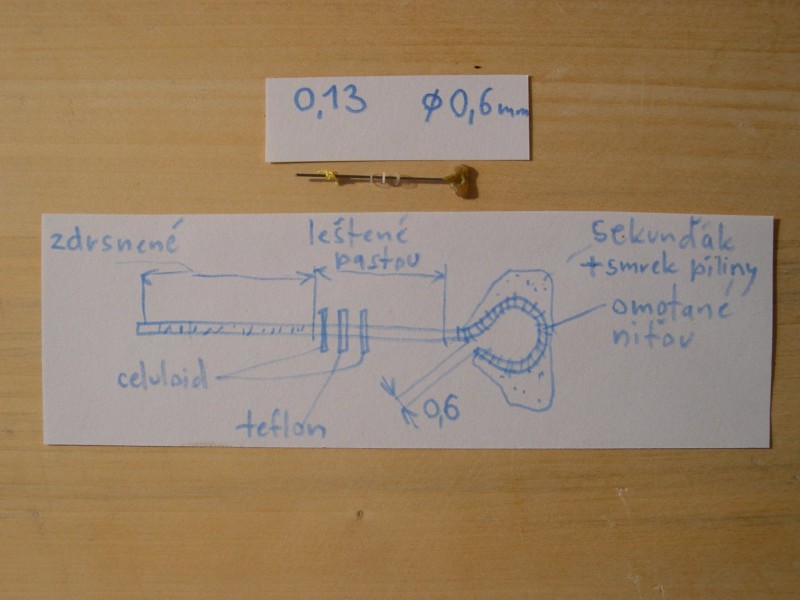 0,13 ϕ0,6mm
zdrsnené
leštené
pastou
sekunďák
+smrek piliny
omotané
niťou
celuloid
teflon
0,6